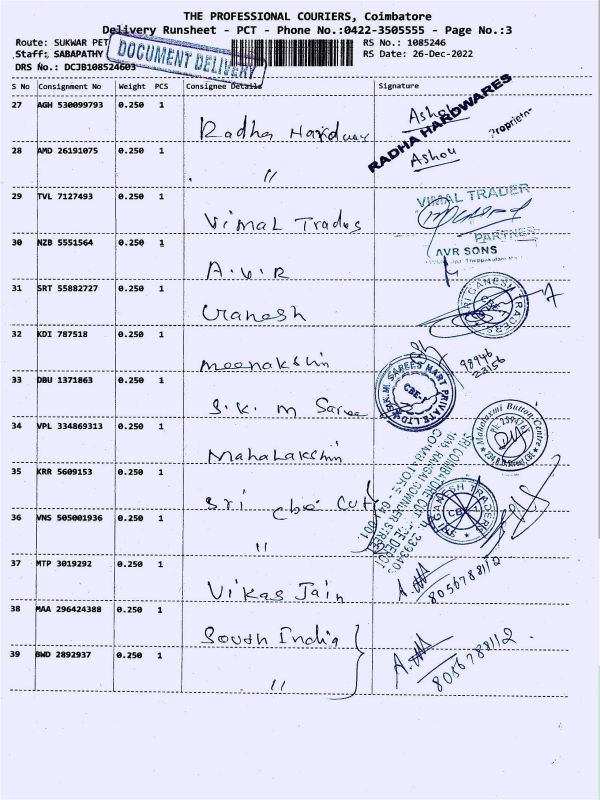 THE PROFESSIONAL COURIERS, Coimbatore
Delivery Runsheet - PCT - Phone No.:0422-3505555 - Page No.:3
Route: SUKWAR PET
RS No.: 1085246
Staff: SABAPATHY
RS Date: 26-Dec-2022
DRS No.: DCJB108524603
DOCUMENT DELIVERY
S No Consignment No Weight PCS Consignee Details Signature
27 AGH 530099793 0.250 1 Radha Hardware Ashok
RADHA HARDWARES
Proprietor
28 AMD 26191075 0.250 1 " Ashok
29 TVL 7127493 0.250 1 Vimal Trades
VIMAL TRADER
PARTNER
30 NZB 5551564 0.250 1 A.V.R
AVR SONS
31 SRT 55882727 0.250 1 Ganesh
SRI GANESH TRADERS
32 KDI 787518 0.250 1 Meenakshi
98946
33 DBU 1371863 0.250 1 S.K.M Saree
S.K.M. SAREES MART PRIVATE LTD
CBE-1
34 VPL 334869313 0.250 1 Mahalakshmi
Mahalaxmi Button Centre
35 KRR 5609153 0.250 1 Sri Cbe Cut
SRI COIMBATORE CUT
COIMBATORE - 641 001.
SRI GANESH TRADERS
36 VNS 505001936 0.250 1 "
37 MTP 3019292 0.250 1 Vikas Jain
8056788112
38 MAA 296424388 0.250 1 South India
8056788112
39 BWD 2892937 0.250 1 "